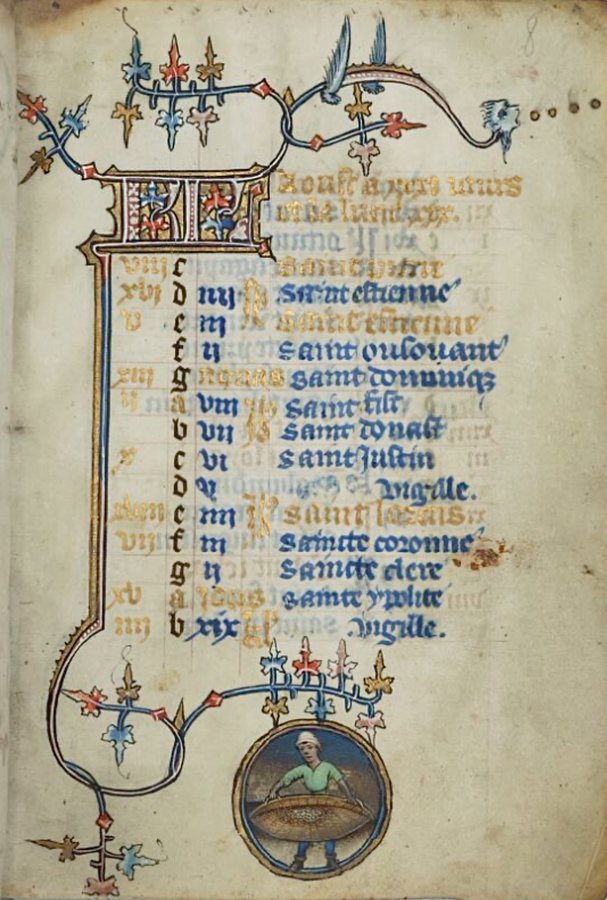 8
KL Aoust a xxxi iours
et la lune xxx.
viii c saint pierre
xvi d iiii N saint estienne
v e iii N saint estienne
f ii saint ousouant
xiii g nonas saint dominiq
ii a viii id saint sist
b vii id saint donast
x c vi saint justin
d v vigille.
xviii e iiii id saint lorens
vii f iii saincte coronne
g ii saincte clere
xv a idus sainte ypolite
iiii b xix kl vigille.